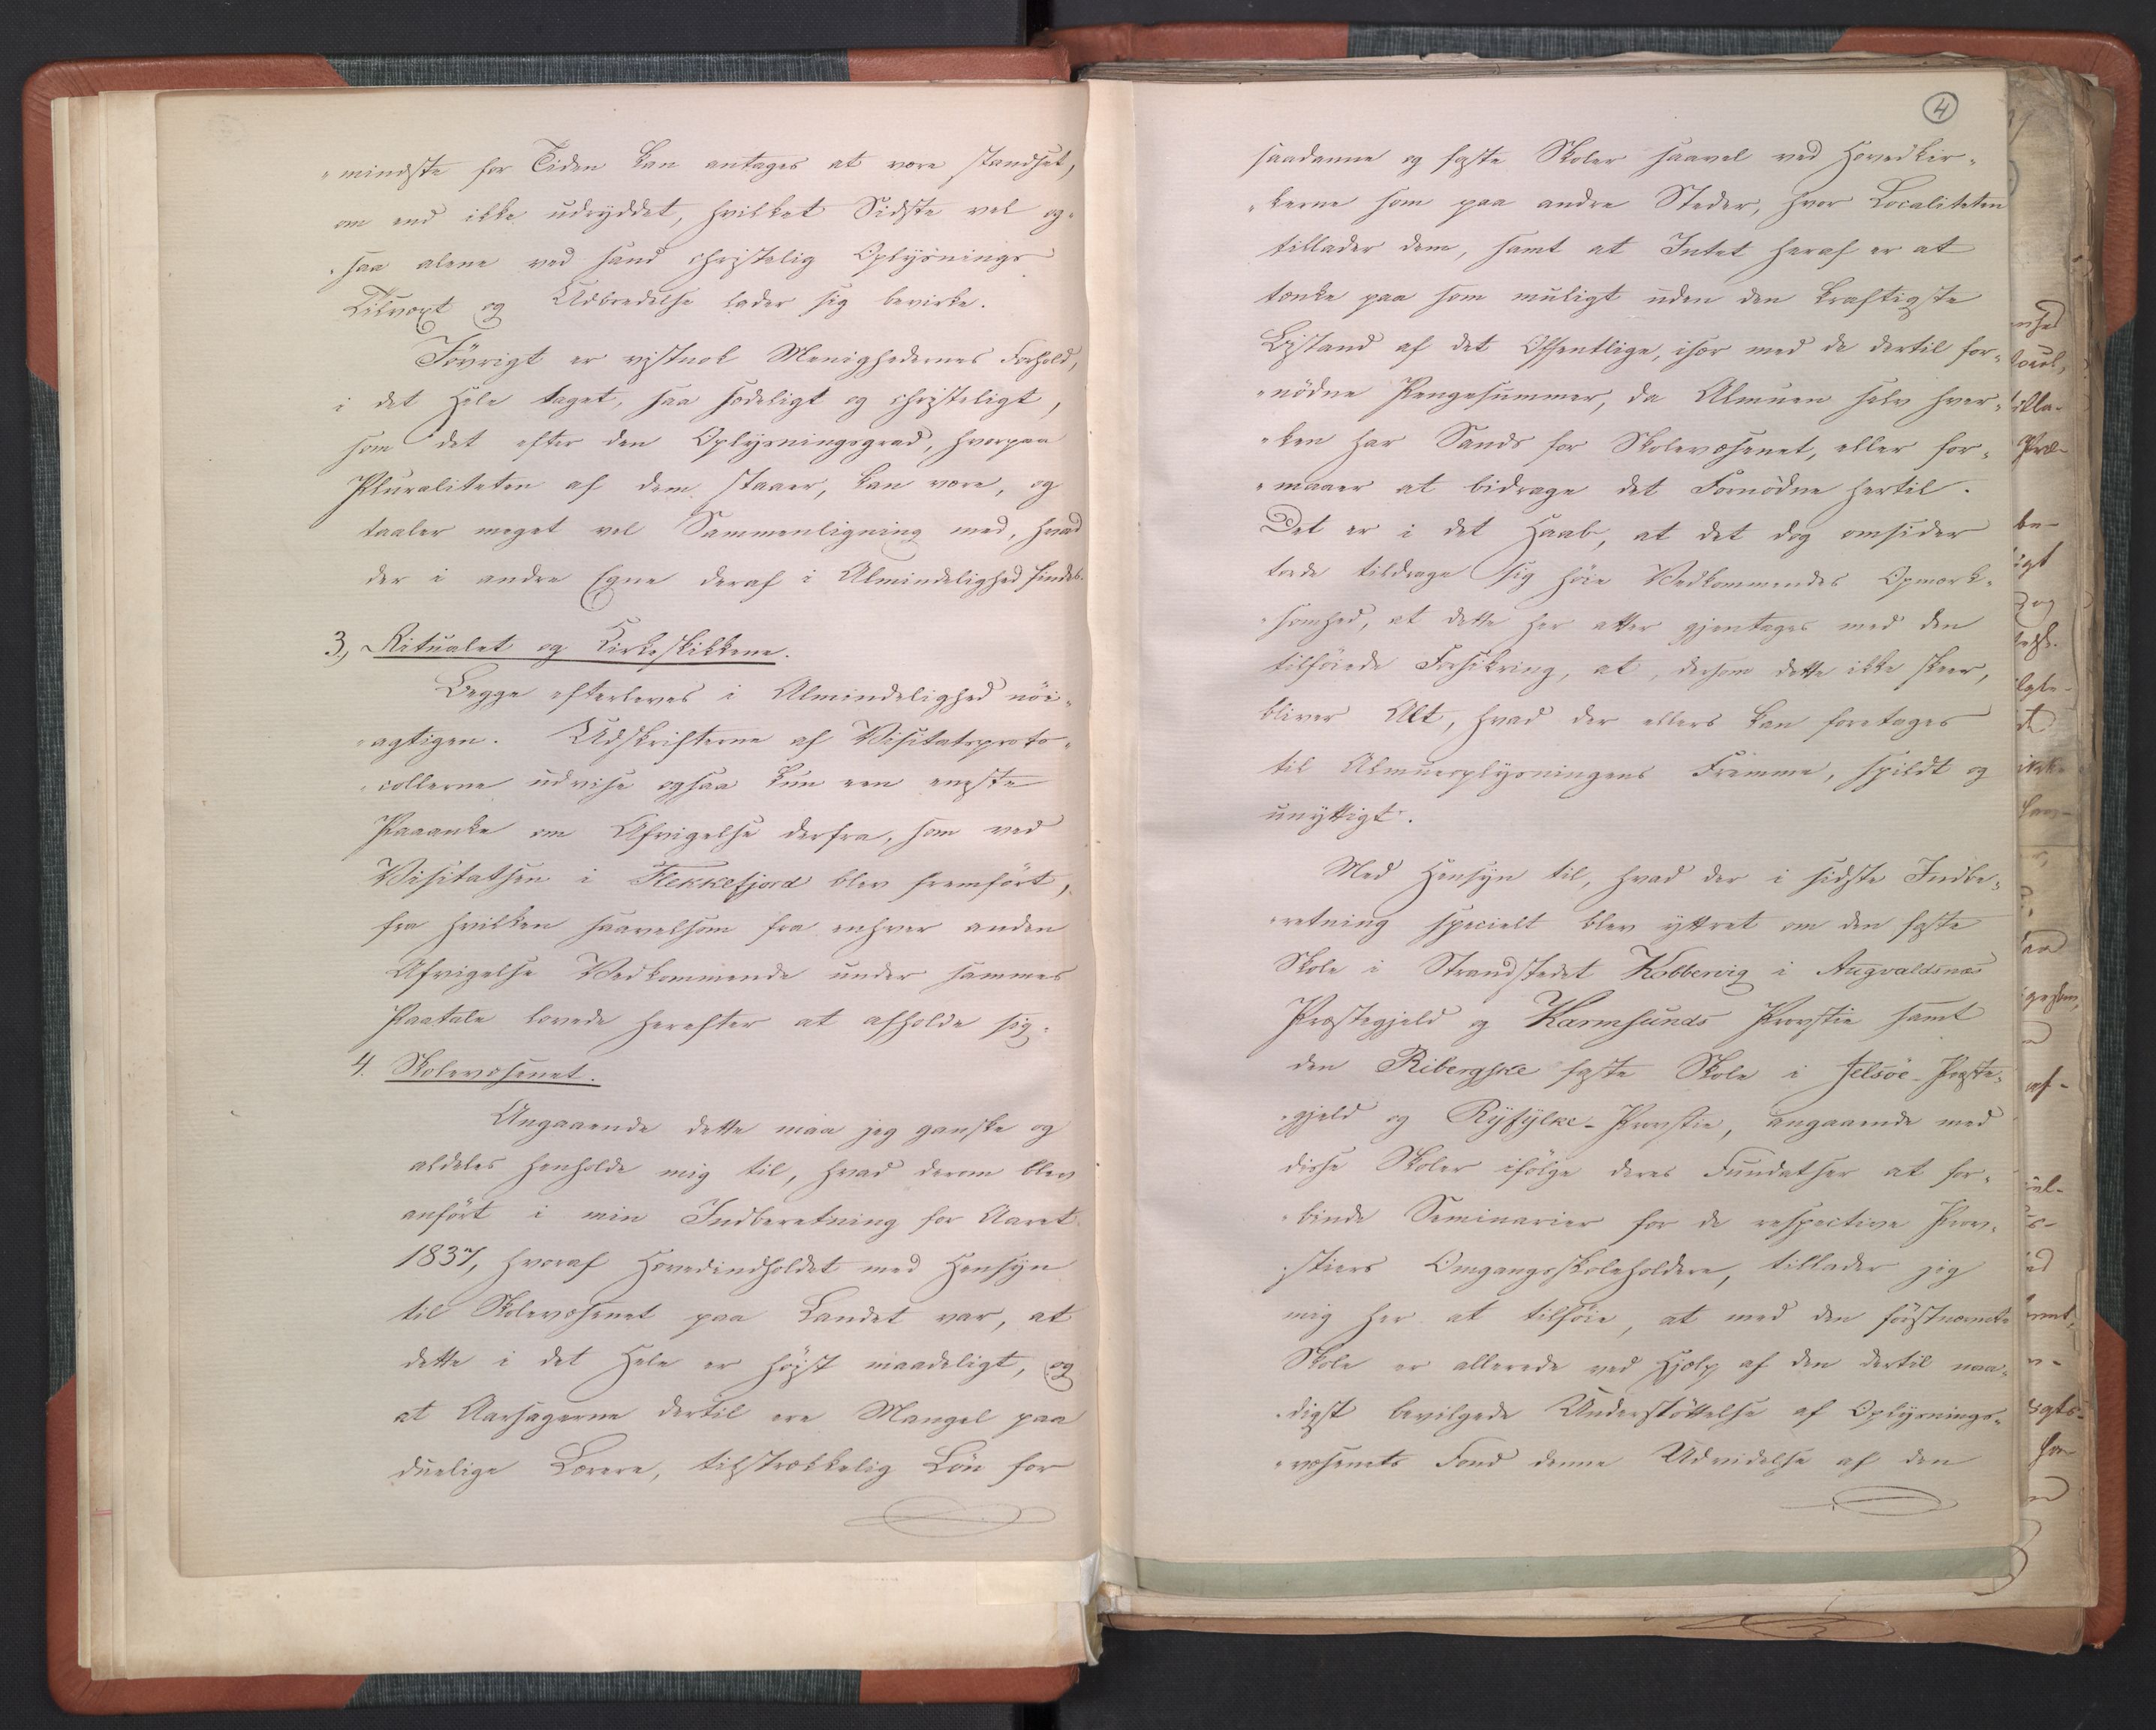 „mindste for Tiden kan antages at være standset,
om end ikke udryddet, hvilket Sidste vel og-
„saa alene ved sand christelig Oplysnings
Tilvæxt og Udbredelse lader sig bevirke.
Iövrigt er vistnok Menighedernes Forhold,
i det Hele taget, saa sædeligt og christeligt,
som det efter den Oplysningsgrad, hvorpaa
Pluraliteten af dem staaer, kan være, og
taaler meget vel Sammenligning med, hvad
der i andre Egne deraf i Almindelighed findes.
3, Ritualet og Kirkeskikkene.
Begge efterleves i Almindelighed nöi-
„agtigen. Udskrifterne af Visitatsproto-
„collerne udvise ogsaa kun een eneste
Paaanke om Afvigelse derfra, som ved
Visitatsen i Flekkefjord blev fremfört,
fra hvilken saavelsom fra enhver anden
Afvigelse Vedkommende under sammes
Paatale lovede herefter at afholde sig.
4. Skolevæsenet.
Angaaende dette maa jeg ganske og
aldeles henholde mig til, hvad derom blev
anfört i min Indberetning for Aaret
1837, hvoraf Hovedindholdet med Hensyn
til Skolevæsenet paa Landet var, at
dette i det Hele er höist maadeligt, og
at Aarsagerne dertil ere Mangel paa
duelige Lærere, tilstrækkelig Lön for
4
saadanne og faste Skoler saavel ved Hovedkir-
„kerne som paa andre Steder, hvor Localiteten
tillader dem, samt at Intet heraf er at
tænke paa som muligt uden den kraftigste
Bistand af det Offentlige, især med de dertil for-
„nödne Pengesummer, da Almuen selv hver-
„ken har Sands for Skolevæsenet, eller for-
„maaer at bidrage det Fornödne hertil.
Det er i det Haab, at det dog omsider
torde tildrage sig höie Vedkommendes Opmærk-
„somhed, at dette her atter gjentages med den
tilföiede Forsikring, at, dersom dette ikke skeer,
bliver Alt, hvad der ellers kan foretages
til Almueoplysningens Fremme, spildt og
unyttigt.
Med Hensyn til, hvad der i sidste Indbe-
„retning specielt blev yttret om den faste
Skole i Strandstedet Kobbervig i Augvaldsnæs
Præstegjeld og Karmsunds Provstie samt
den Ribergske faste Skole i Jelsöe-Præste-
„gjeld og Ryfylke-Provstie, angaaende med
disse Skoler ifölge deres Fundatser at for-
„binde Seminarier for de respective Prov-
„stiers Omgangsskoleholdere, tillader jeg
mig her at tilföie, at med den förstnævnte
Skole er allerede ved Hjelp af den dertil naa-
„digst bevilgede Understöttelse af Oplysnings-
„væsenets Fond denne Udvidelse af den